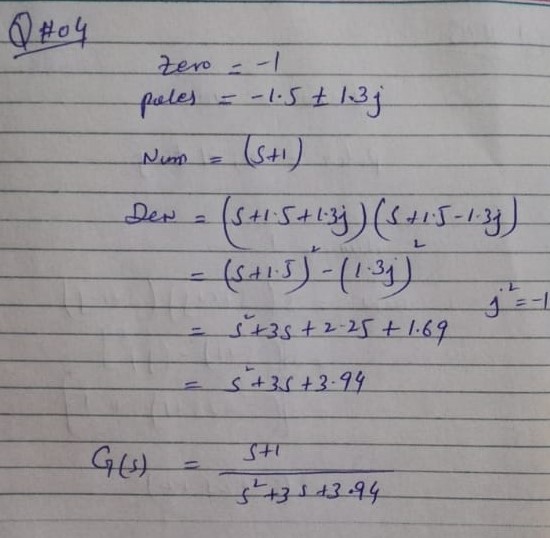 Q#04
Zero = -1
poles = -1.5 ± 1.3j
Num = (s+1)
Den = (s+1.5+1.3j)(s+1.5-1.3j)
= (s+1.5)² - (1.3j)²
j² = -1
= s²+3s+2.25+1.69
= s²+3s+3.94
G(s) = s+1
s²+3s+3.94